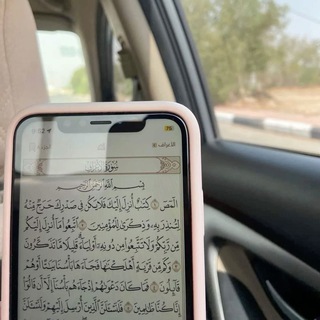 9:52
75
الأعراف
سورة الأعراف
بسم الله الرحمن الرحيم
الٓمٓصٓ ١ كِتَٰبٌ أُنزِلَ إِلَيْكَ فَلَا يَكُن فِى صَدْرِكَ حَرَجٌ مِّنْهُ
لِتُنذِرَ بِهِۦ وَذِكْرَىٰ لِلْمُؤْمِنِينَ ٢ ٱتَّبِعُوا۟ مَآ أُنزِلَ إِلَيْكُم
مِّن رَّبِّكُمْ وَلَا تَتَّبِعُوا۟ مِن دُونِهِۦٓ أَوْلِيَآءَ قَلِيلًا مَّا تَذَكَّرُونَ ٣
وَكَم مِّن قَرْيَةٍ أَهْلَكْنَٰهَا فَجَآءَهَا بَأْسُنَا بَيَٰتًا أَوْ هُمْ
قَآئِلُونَ ٤ فَمَا كَانَ دَعْوَىٰهُمْ إِذْ جَآءَهُم بَأْسُنَآ إِلَّآ أَن قَالُوٓا۟
إِنَّا كُنَّا ظَٰلِمِينَ ٥ فَلَنَسْـَٔلَنَّ ٱلَّذِينَ أُرْسِلَ إِلَيْهِمْ وَلَنَسْـَٔلَنَّ